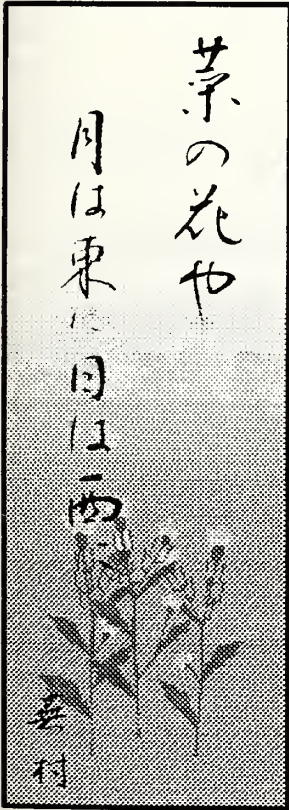 菜の花や
月は東に日は西に
蕪村